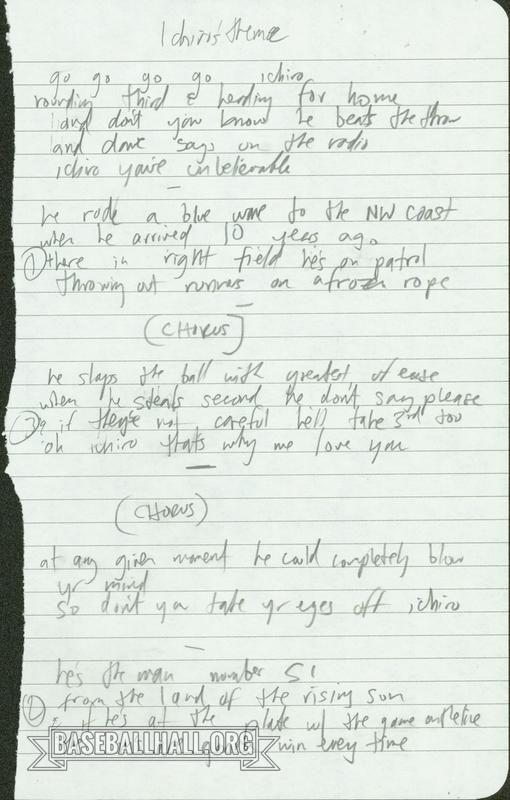 Ichiro's theme
go go go go ichiro
rounding third & heading for home
and don't you know he beats the throw
and dave says on the radio
ichiro you're unbelievable
he rode a blue wave to the NW coast
when he arrived 10 years ago
① there in right field he's on patrol
throwing out runners on a frozen rope
(CHORUS)
he slaps the ball with greatest of ease
when he steals second he don't say please
③ & if they're not careful he'll take 3rd too
oh ichiro that's why we love you
(CHORUS)
at any given moment he could completely blow
yr mind
so don't you take yr eyes off ichiro
he's the man number 51
② from the land of the rising sun
& if he's at the plate w/ the game on the line
win every time
BASEBALLHALL.ORG